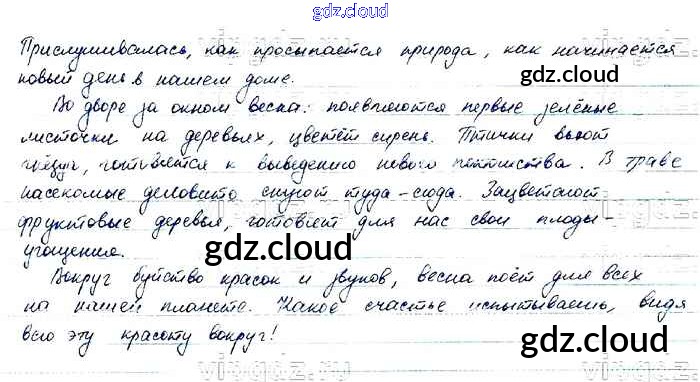 gdz.cloud
Прислушивалась, как просыпается природа, как начинается
новый день в нашем доме.
gdz.cloud
Во дворе за окном весна: появляются первые зелёные
gdz.cloud
листочки на деревьях, цветёт сирень. Птички вьют
гнёзда, готовятся к выведению нового потомства. В траве
насекомые деловито снуют туда-сюда. Зацветают
фруктовые деревья, готовят для нас свои плоды-
угощения.
gdz.cloud
Вокруг буйство красок и звуков, весна поёт для всех
на нашей планете. Какое счастье испытываешь, видя
всю эту красоту вокруг!
gdz.cloud